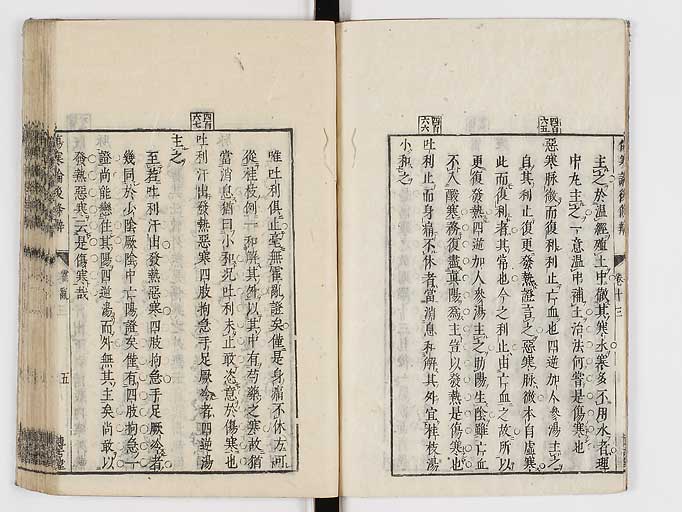 主之於溫經殖土中徹其寒水寒多不用水者理
中丸主之一意溫中補土治法何嘗是傷寒也
四百六五
惡寒脉微而復利利止亡血也四逆加人參湯主之
自其利止復更發熱證言之惡寒脉微本自虛寒
此而復利者其常也今之利止由亡血之故所以
更復發熱四逆加人參湯主之助陽生陰雖亡血
不入酸寒務復盡真陽為主豈以發熱是傷寒也
四百六六
吐利止而身痛不休者當消息和解其外宜桂枝湯
小和之
唯吐利俱止毫無霍亂證矣僅是身痛不休方可
從桂枝例一和解其外以其中有芍藥之寒故猶
當消息猶曰小和況吐利未止敢恣意於傷寒也
四百六七
吐利汗出發熱惡寒四肢拘急手足厥冷者四逆湯
主之
至若吐利汗出發熱惡寒四肢拘急手足厥冷者
幾同於少陰厥陰中亡陽證矣僅有四肢拘急一
證尚能戀住其陽四逆湯而外無其主矣尚敢以
發熱惡寒云是傷寒哉
傷寒論後條辨
霍亂
五
卷十三